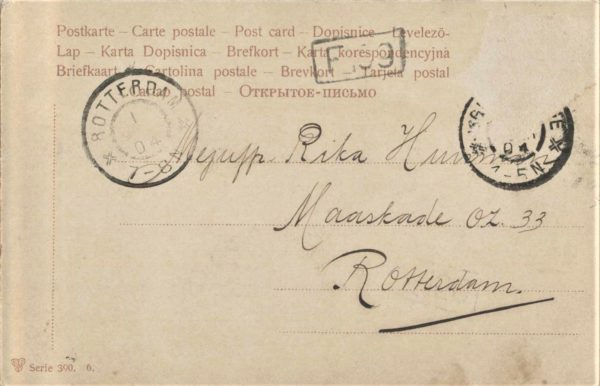 Postkarte – Carte postale – Post card – Dopisnice – Levelező-
Lap – Karta Dopisnica – Brefkort – Karta korespondencyjna
Briefkaart – Cartolina postale – Brevkort – Tarjeta postal
postal – Открытое-письмо
ROTTERDAM
1
04
7-8
04
-5N
Mejuffr Rika
Maaskade OZ. 33
Rotterdam.
Serie 390. 6.